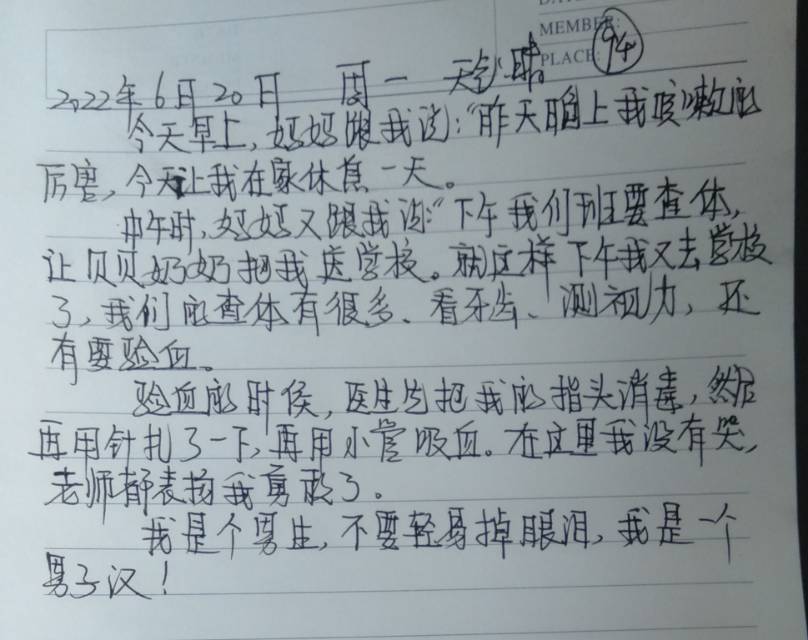 MEMBER:
PLACE:
94
2022年6月20日 周一 天气 晴
今天早上,妈妈跟我说:“昨天晚上我咳嗽的
厉害,今天让我在家休息一天。
中午时,妈妈又跟我说:“下午我们班要查体,
让贝贝奶奶把我送学校。就这样下午我又去学校
了,我们的查体有很多、看牙齿、测视力,还
有要验血。
验血的时候,医生先把我的指头消毒,然后
再用针扎了一下,再用小管吸血。在这里我没有哭,
老师都表扬我勇敢了。
我是个男生,不要轻易掉眼泪,我是一个
男子汉!